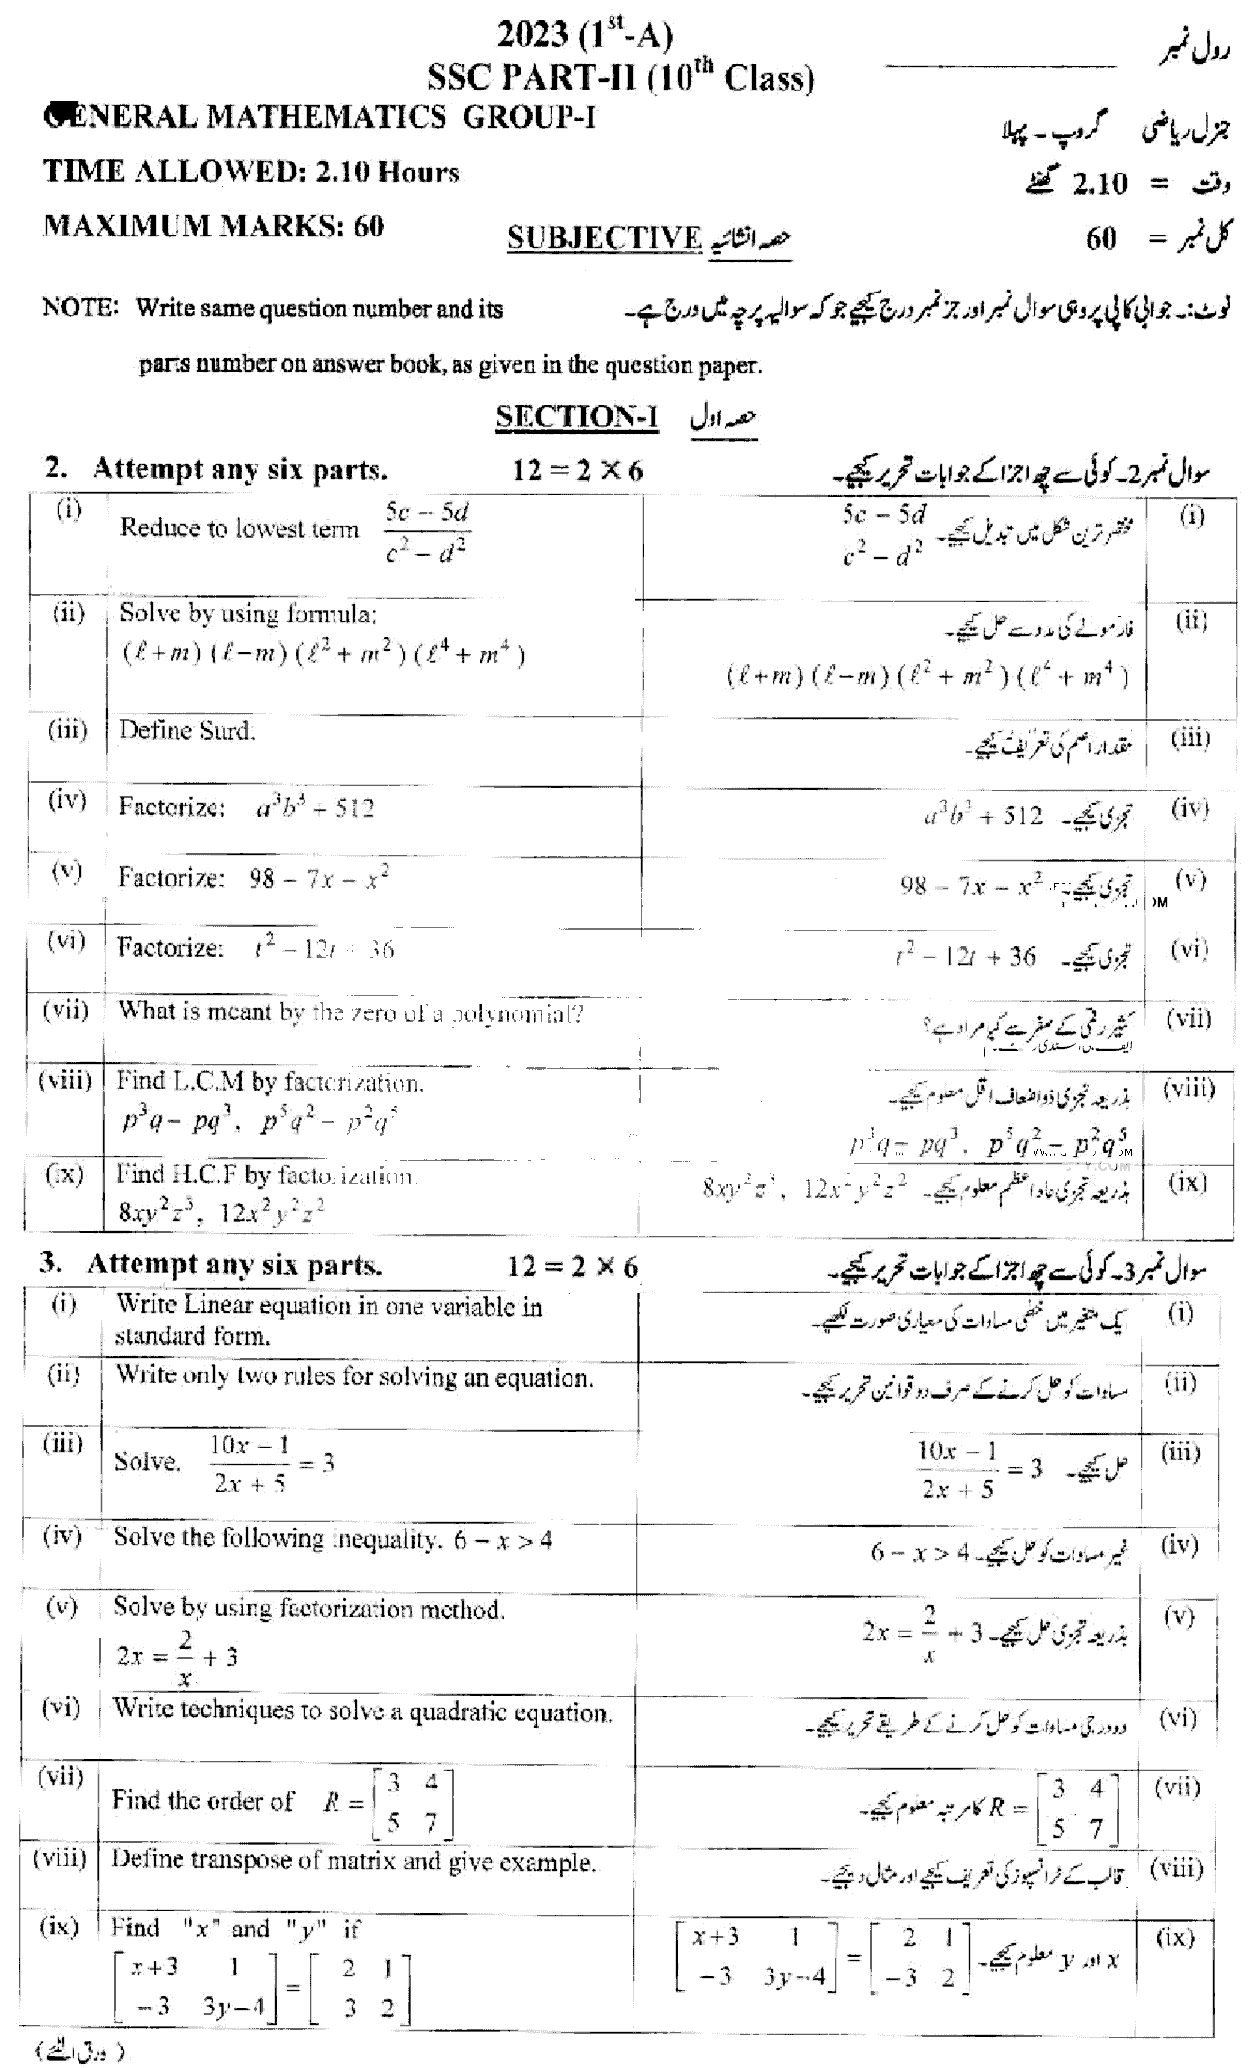 2023 (1st-A)
رول نمبر ____________
SSC PART-II (10th Class)
GENERAL MATHEMATICS GROUP-I
جنرل ریاضی گروپ۔ پہلا
TIME ALLOWED: 2.10 Hours
وقت = 2.10 گھنٹے
MAXIMUM MARKS: 60
کل نمبر = 60
SUBJECTIVE حصہ انشائیہ
NOTE: Write same question number and its
نوٹ:۔ جوابی کاپی پر وہی سوال نمبر اور جز نمبر درج کیجیے جو کہ سوالیہ پرچہ میں درج ہے۔
parts number on answer book, as given in the question paper.
SECTION-I حصہ اول
2. Attempt any six parts. 12 = 2 × 6
سوال نمبر 2۔ کوئی سے چھ اجزا کے جوابات تحریر کیجیے۔
(i) Reduce to lowest term (5c – 5d)/(c² – d²)
(i) مختصر ترین شکل میں تبدیل کیجیے۔ (5c – 5d)/(c² – d²)
(ii) Solve by using formula:
(ℓ+m) (ℓ–m) (ℓ² + m²) (ℓ⁴ + m⁴)
(ii) فارمولے کی مدد سے حل کیجیے۔
(ℓ+m) (ℓ–m) (ℓ² + m²) (ℓ⁴ + m⁴)
(iii) Define Surd.
(iii) مقدار اصم کی تعریف کیجیے۔
(iv) Factorize: a³b³ + 512
(iv) تجزی کیجیے۔ a³b³ + 512
(v) Factorize: 98 – 7x – x²
(v) تجزی کیجیے۔ 98 – 7x – x²
(vi) Factorize: t² – 12t + 36
(vi) تجزی کیجیے۔ t² – 12t + 36
(vii) What is meant by the zero of a polynomial?
(vii) کثیر رقمی کے صفر سے کیا مراد ہے؟
(viii) Find L.C.M by factorization.
p³q – pq³, p⁵q² – p²q⁵
(viii) بذریعہ تجزی ذواضعاف اقل معلوم کیجیے۔
p³q – pq³, p⁵q² – p²q⁵
(ix) Find H.C.F by factorization.
8xy²z³, 12x²y²z²
(ix) بذریعہ تجزی عاد اعظم معلوم کیجیے۔ 8xy²z³, 12x²y²z²
3. Attempt any six parts. 12 = 2 × 6
سوال نمبر 3۔ کوئی سے چھ اجزا کے جوابات تحریر کیجیے۔
(i) Write Linear equation in one variable in
standard form.
(i) یک متغیر میں خطی مساوات کی معیاری صورت لکھیے۔
(ii) Write only two rules for solving an equation.
(ii) مساوات کو حل کرنے کے صرف دو قوانین تحریر کیجیے۔
(iii) Solve. (10x – 1)/(2x + 5) = 3
(iii) حل کیجیے۔ (10x – 1)/(2x + 5) = 3
(iv) Solve the following inequality. 6 – x > 4
(iv) غیر مساوات کو حل کیجیے۔ 6 – x > 4
(v) Solve by using factorization method.
2x = 2/x + 3
(v) بذریعہ تجزی حل کیجیے۔ 2x = 2/x + 3
(vi) Write techniques to solve a quadratic equation.
(vi) دو درجی مساوات کو حل کرنے کے طریقے تحریر کیجیے۔
(vii) Find the order of R = [3 4; 5 7]
(vii) R = [3 4; 5 7] کا مرتبہ معلوم کیجیے۔
(viii) Define transpose of matrix and give example.
(viii) قالب کے ٹرانسپوز کی تعریف کیجیے اور مثال دیجیے۔
(ix) Find "x" and "y" if
[x+3 1; –3 3y–4] = [2 1; 3 2]
(ix) x اور y معلوم کیجیے۔ [x+3 1; –3 3y–4] = [2 1; –3 2]
(ورق الٹیے)